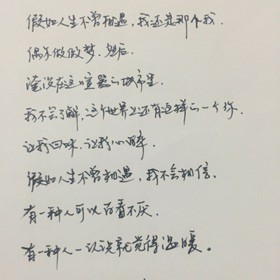 假如人生不曾相遇，我还是那个我，
偶尔做做梦，然后，
淹没在这喧嚣的城市里。
我不会了解，这个世界上还有这样的一个你，
让我回味，让我心醉。
假如人生不曾相遇，我不会相信，
有一种人可以百看不厌，
有一种人一认识就觉得温暖。